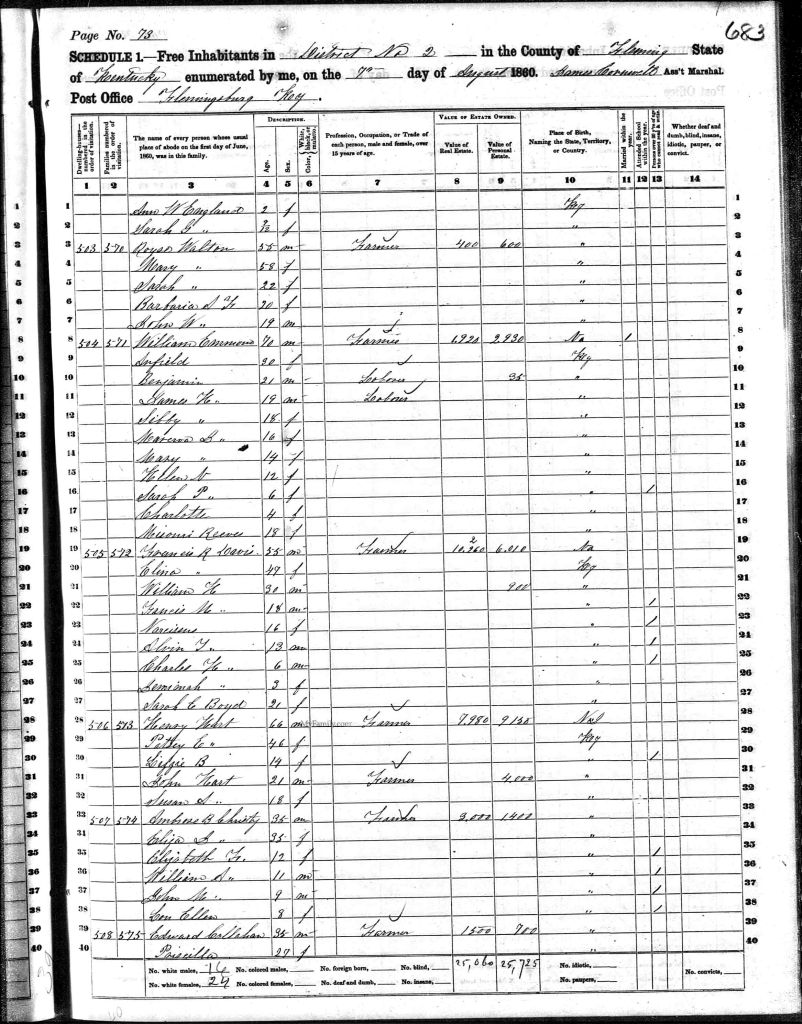 683
Page No. 73
SCHEDULE 1.—Free Inhabitants in District No 2 in the County of Fleming State
of Kentucky enumerated by me, on the 7th day of August 1860. James Cornwell Ass't Marshal.
Post Office Flemingsburg Ky.
DESCRIPTION. VALUE OF ESTATE OWNED.
Dwelling-houses—numbered in the order of visitation. Families numbered in the order of visitation. The name of every person whose usual place of abode on the first day of June, 1860, was in this family. Age. Sex. Color, White, black, or mulatto. Profession, Occupation, or Trade of each person, male and female, over 15 years of age. Value of Real Estate. Value of Personal Estate. Place of Birth, Naming the State, Territory, or Country. Married within the year. Attended School within the year. Whether deaf and dumb, blind, insane, idiotic, pauper, or convict.
1 2 3 4 5 6 7 8 9 10 11 12 13 14
1 Ann W England 2 f Ky 1
2 Sarah G " f " 2
3 503 570 Walton 55 m Farmer 400 600 " 3
4 Mary " 58 f " 4
5 Sarah " 22 f " 5
6 Barbaria 20 f " 6
7 John W " 19 m " 7
8 504 571 William Emmons 70 m Farmer 2930 1 8
9 30 f Ky 9
10 Benjamin 21 m 35 " 10
11 James H. " 19 m " 11
12 Sibby " 18 f " 12
13 " 16 f " 13
14 Mary " 14 f " 14
15 Ellen 12 f " 15
16 Sarah P " 6 f " 1 16
17 Charlotte 4 f " 17
18 Misouri Reeves 18 f " 18
19 505 572 Francis R Davis 55 m Farmer 6,010 19
20 Elina " 47 f Ky 20
21 William H 30 m 900 " 21
22 Francis M " 18 m " 1 22
23 Narcissus 16 f " 1 23
24 Alvin T " 13 m " 1 24
25 Charles H " 6 m " 1 25
26 Jemimah " 3 f " 26
27 Sarah C Boyd 21 f " 27
28 506 573 Henry Hart 66 m Farmer 7,980 28
29 Patsy E " 46 f Ky 29
30 Lizzie B 14 f " 1 30
31 John Hart 21 m Farmer 4,000 " 31
32 Susan S " 18 f " 32
33 507 574 Ambrose B Christy 35 m Farmer 3,000 1400 " 33
34 Eliza J " 35 f " 34
35 Elizabeth F. 12 f " 1 35
36 William S " 11 m " 1 36
37 John M " 9 m " 1 37
38 Lou Ellen 8 f " 1 38
39 508 575 Edward Callahan 35 m Farmer 1500 700 " 39
40 Priscilla 27 f " 40
No. white males, 16 No. colored males, No. foreign born, No. blind, 25,060 25,725 No. idiotic, No. convicts,
No. white females, 24 No. colored females, No. deaf and dumb, No. insane, No. paupers,